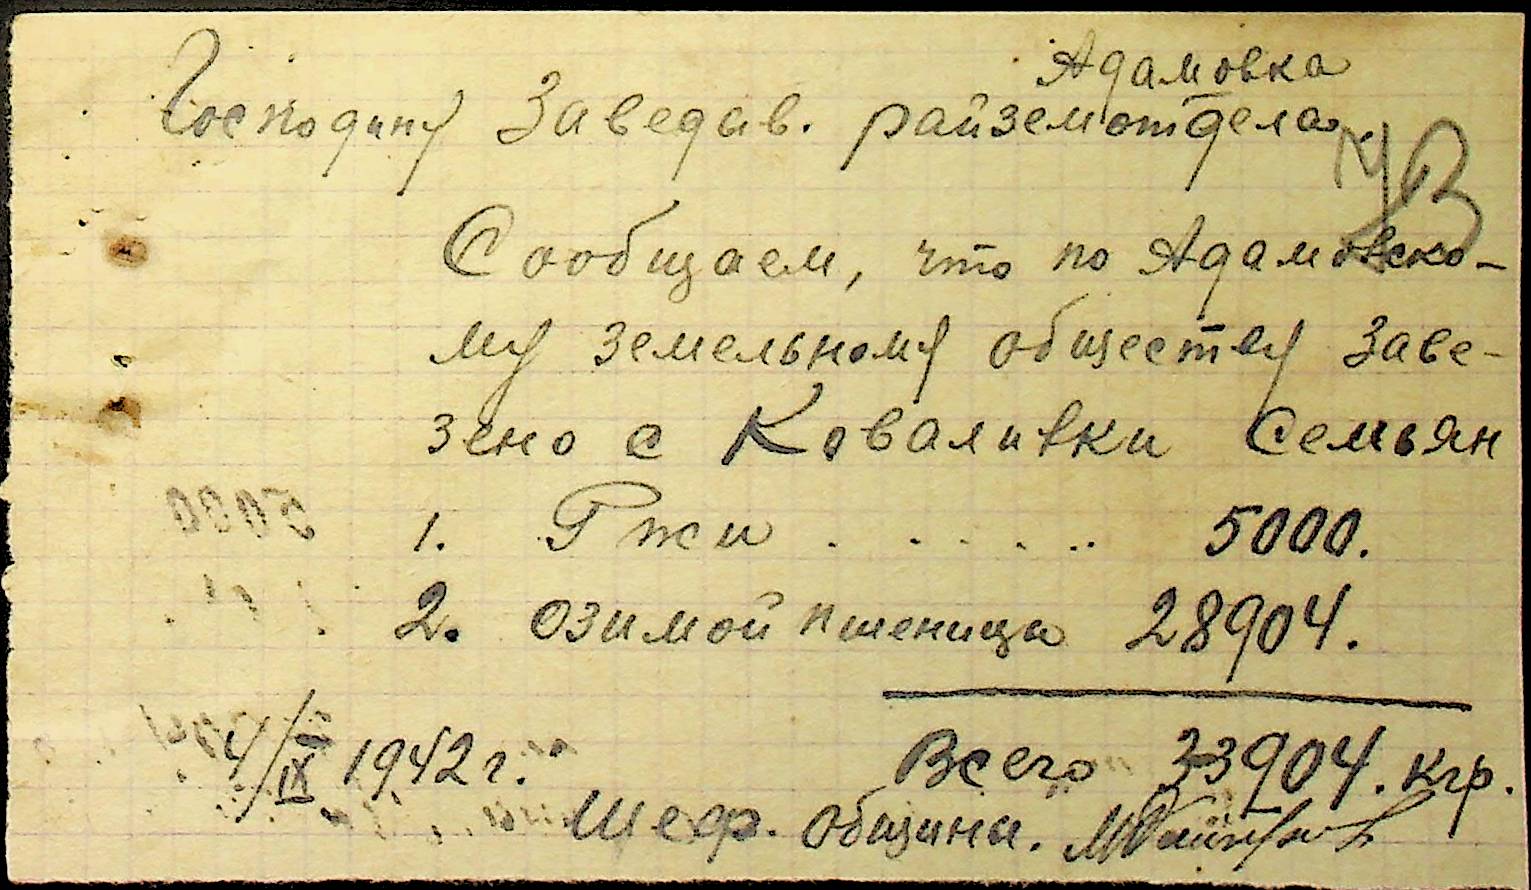 Адамовка
Господину Заведав. райземотдела
Сообщаем, что по Адамовско-
му земельному обществу заве-
зено с Коваливки Семьян
1. Ржи . . . . . . 5000.
2. озимой пшеница 28904.
Всего 33904. кгр.
4/IX 1942 г.
Шеф. общины.